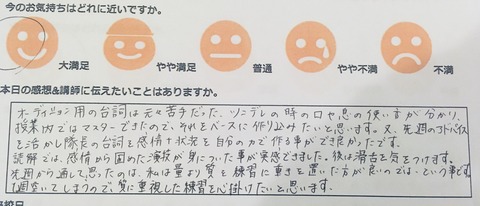 今のお気持ちはどれに近いですか。
大満足 やや満足 普通 やや不満 不満
本日の感想&講師に伝えたいことはありますか。
オーディション用の台詞は元々苦手だった、ツンデレの時の口や息の使い方が分かり、
授業内ではマスターできたので、それをベースに作り込みたいと思います。又、先週のアドバイス
を活かし隊長の台詞を感情+状況を自分の力で作る事ができ良かったです。
読解では、感情から固めた演技が身についた事が実感できました。後は滑舌を気をつけます。
先週から通して思ったのは、私は量より質を練習に重きを置いた方が良いのでは、という事です
1週空いてしまうので、質に重視した練習を心掛けたいと思います。